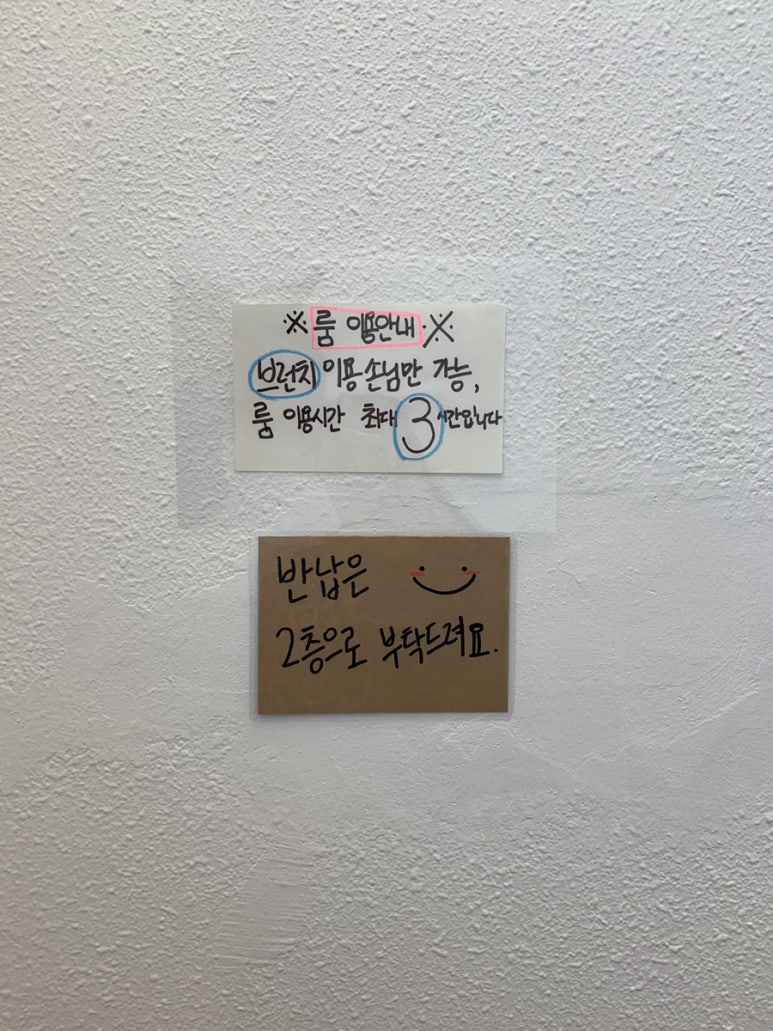 ※ 룸 이용안내 ※
브런치 이용손님만 가능,
룸 이용시간 최대 3시간입니다
반납은
2층으로 부탁드려요.